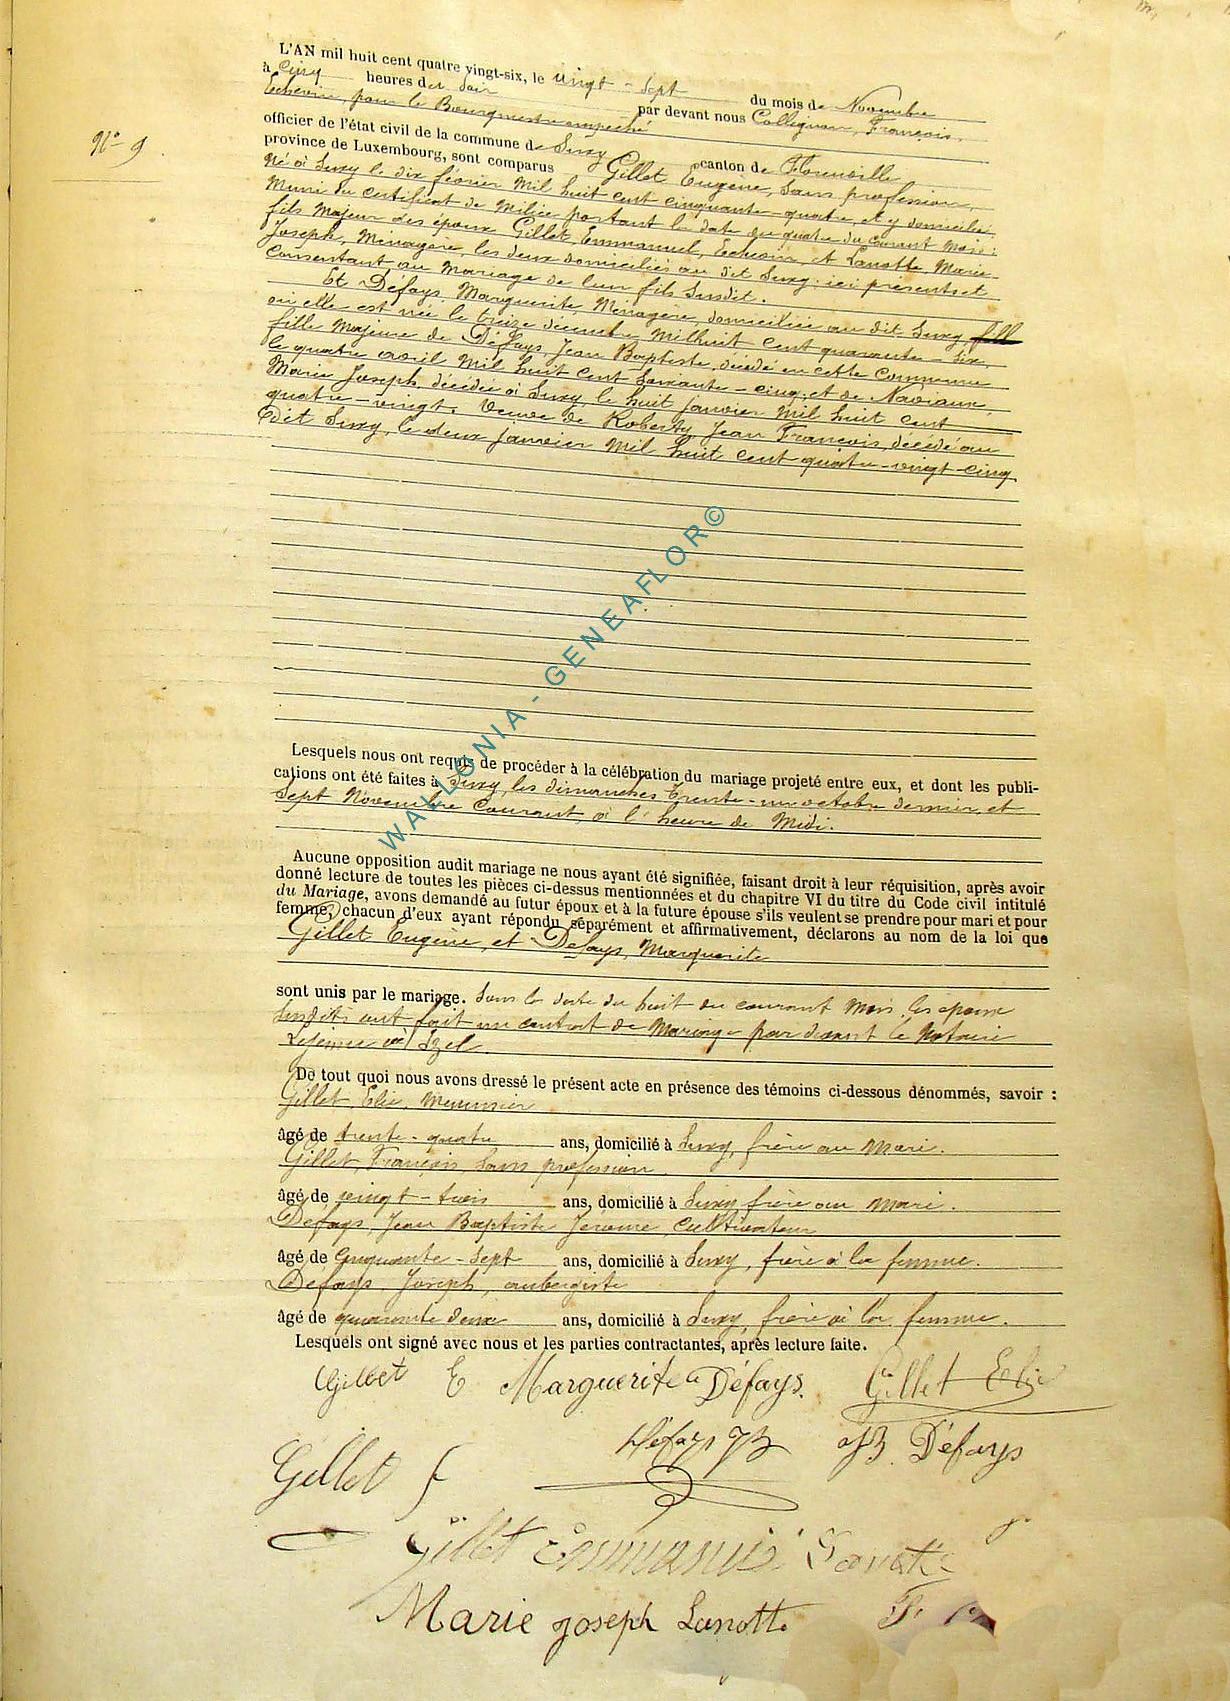 N° 9
L'AN mil huit cent quatre vingt-six, le vingt-sept du mois de Novembre
à cinq heures de soir par devant nous Collignon, François,
Echevin, pour le Bourgmestre empêché
officier de l'état civil de la commune de Suxy canton de Florenville
province de Luxembourg, sont comparus Gillet Eugène, sans profession,
Né à Suxy le dix février Mil huit cent cinquante-quatre, et y domicilié,
Muni du certificat de Milice portant la date du quatre du courant mois;
fils Majeur des époux Gillet, Emmanuel, Echevin, et Lanotte Marie
Joseph, Ménagère, les deux domiciliés au dit Suxy; ici présents et
consentant au mariage de leur fils susdit.
Et Défays, Marguerite, Ménagère, domiciliée au dit Suxy
où elle est née le treize décembre Milhuit cent quarante-six,
fille Majeure de Défays, Jean Baptiste, décédé en cette Commune
le quatre avril Mil huit cent soixante-cinq, et de Naviaux,
Marie Joseph, décédée à Suxy le huit janvier Mil huit cent
quatre-vingt. Veuve de Roberty Jean François, décédé au
dit Suxy, le deux janvier Mil huit cent quatre-vingt-cinq
Lesquels nous ont requis de procéder à la célébration du mariage projeté entre eux, et dont les publi-
cations ont été faites à Suxy, les dimanches trente-un octobre dernier, et
sept Novembre courant, à l'heure de Midi.
Aucune opposition audit mariage ne nous ayant été signifiée, faisant droit à leur réquisition, après avoir
donné lecture de toutes les pièces ci-dessus mentionnées et du chapitre VI du titre du Code civil intitulé
du Mariage, avons demandé au futur époux et à la future épouse s'ils veulent se prendre pour mari et pour
femme, chacun d'eux ayant répondu séparément et affirmativement, déclarons au nom de la loi que
Gillet Eugène, et Defays, Marguerite
sont unis par le mariage. Sous la date du huit du courant Mois, les époux
susdits ont fait un contrat de Mariage par devant le Notaire
Lejeune à Izel.
De tout quoi nous avons dressé le présent acte en présence des témoins ci-dessous dénommés, savoir :
Gillet, Elie, Meunier
âgé de trente-quatre ans, domicilié à Suxy, frère au Mari.
Gillet, François, sans profession
âgé de vingt-trois ans, domicilié à Suxy frère au Mari.
Defays, Jean Baptiste Jérome, Cultivateur
âgé de Cinquante-sept ans, domicilié à Suxy, frère à la femme.
Defays, Joseph, aubergiste
âgé de quarante deux ans, domicilié à Suxy, frère à la femme.
Lesquels ont signé avec nous et les parties contractantes, après lecture faite.
Gillet E Marguerite Défays. Gillet Elie
Défays JB JB. Défays
Gillet f
Gillet Emmanuel
Marie joseph Lanotte
WALLONIA - GENEAFLOR©